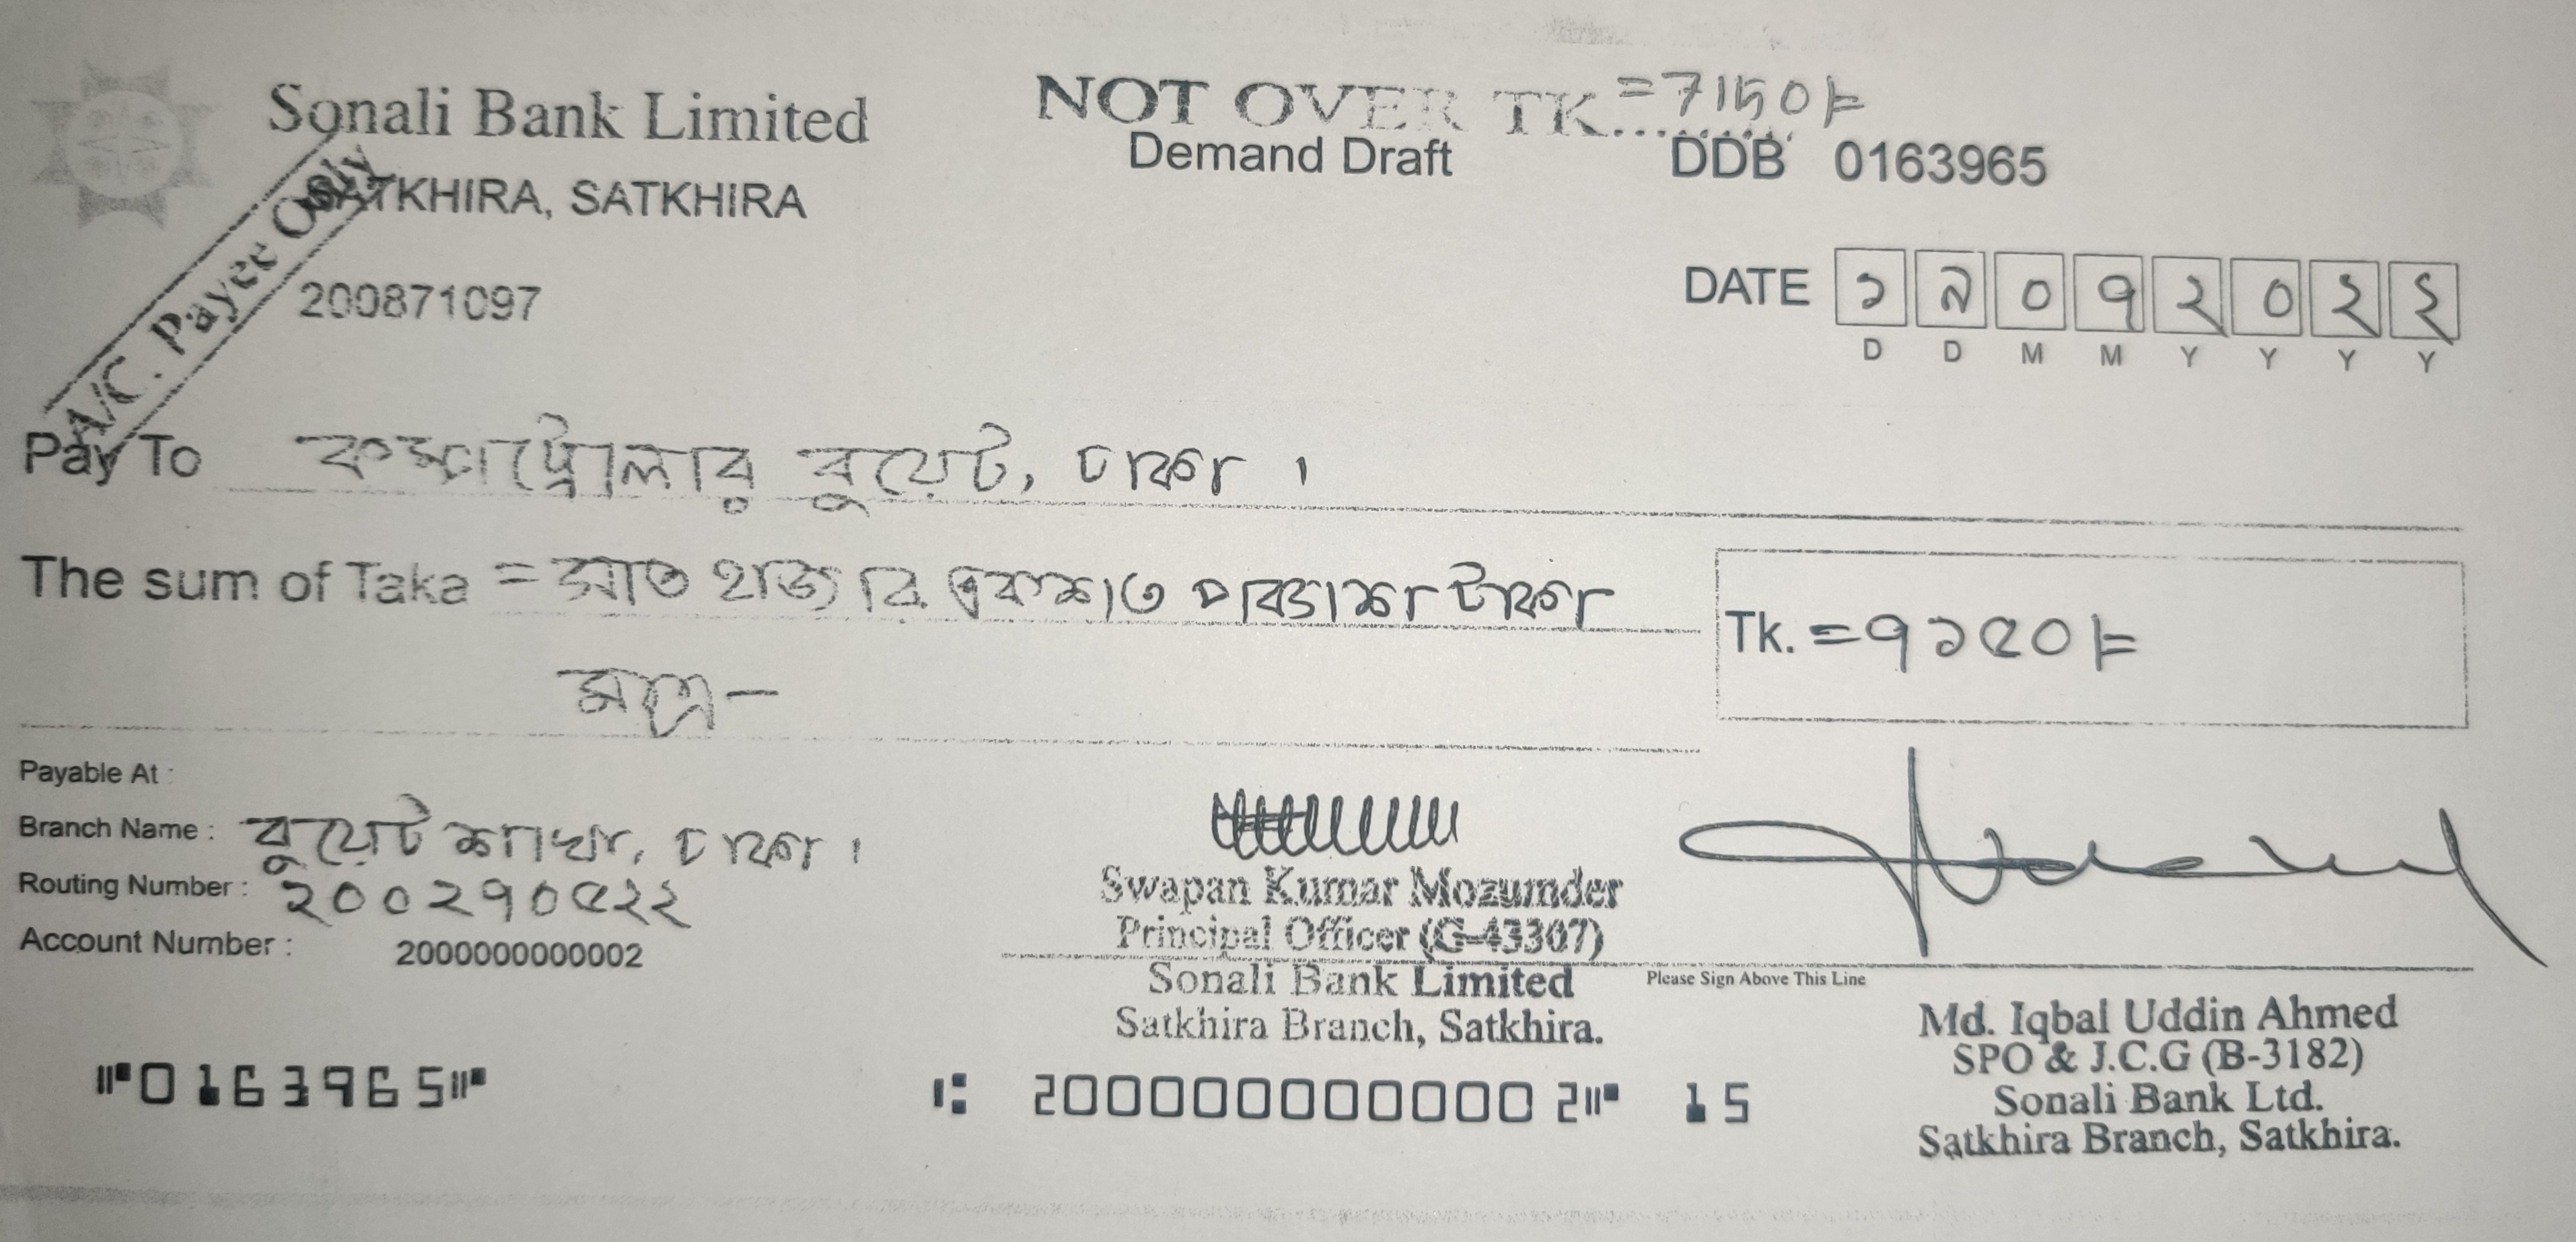 Sonali Bank Limited
SATKHIRA, SATKHIRA
200871097
A/C. Payee Only
NOT OVER TK.......... =7150/=
Demand Draft
DDB 0163965
DATE ১৯০৭২০২২
D D M M Y Y Y Y
Pay To কম্পট্রোলার বুয়েট, ঢাকা।
The sum of Taka = সাত হাজার একশত পঞ্চাশ টাকা
মাত্র-
Tk. =৭১৫০/=
Payable At :
Branch Name : বুয়েট শাখা, ঢাকা।
Routing Number : ২০০২৭০৫২২
Account Number : 2000000000002
Swapan Kumar Mozumder
Principal Officer (G-43307)
Sonali Bank Limited
Satkhira Branch, Satkhira.
Please Sign Above This Line
Md. Iqbal Uddin Ahmed
SPO & J.C.G (B-3182)
Sonali Bank Ltd.
Satkhira Branch, Satkhira.
⑈0163965⑈ ⑆ 2000000000002⑈ 15